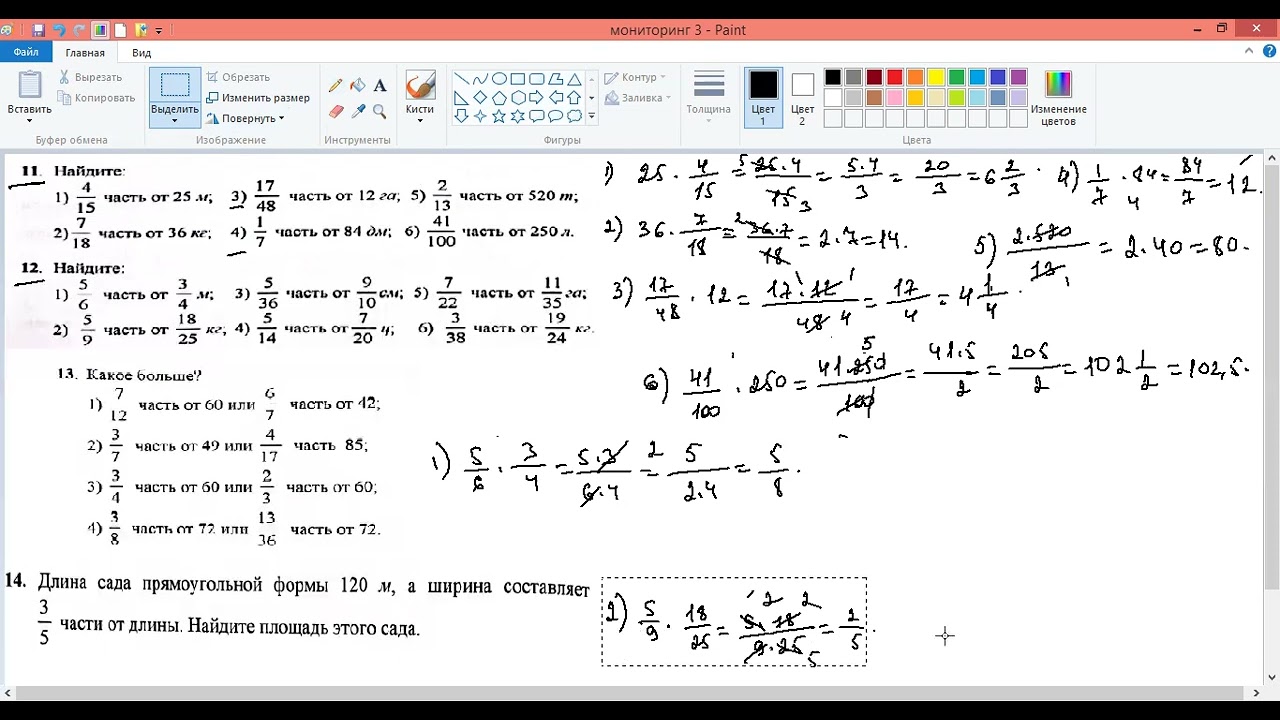 мониторинг 3 - Paint
Файл Главная Вид
Вставить
Вырезать
Копировать
Буфер обмена
Выделить
Обрезать
Изменить размер
Повернуть
Изображение
Инструменты
Кисти
Фигуры
Контур
Заливка
Толщина
Цвет 1
Цвет 2
Изменение цветов
Цвета
11. Найдите:
1) 4/15 часть от 25 м; 3) 17/48 часть от 12 га; 5) 2/13 часть от 520 т;
2) 7/18 часть от 36 кг; 4) 1/7 часть от 84 дм; 6) 41/100 часть от 250 л.
12. Найдите:
1) 5/6 часть от 3/4 м; 3) 5/36 часть от 9/10 см; 5) 7/22 часть от 11/35 га;
2) 5/9 часть от 18/25 кг; 4) 5/14 часть от 7/20 ч; 6) 3/38 часть от 19/24 кг.
13. Какое больше?
1) 7/12 часть от 60 или 6/7 часть от 42;
2) 3/7 часть от 49 или 4/17 часть 85;
3) 3/4 часть от 60 или 2/3 часть от 60;
4) 3/8 часть от 72 или 13/36 часть от 72.
14. Длина сада прямоугольной формы 120 м, а ширина составляет
3/5 части от длины. Найдите площадь этого сада.
1) 25 · 4/15 = 25·4/15 = 5·4/3 = 20/3 = 6 2/3 ·
4) 1/7 · 84 = 84/7 = 12.
2) 36 · 7/18 = 36·7/18 = 2·7=14.
5) 2·520/13 = 2·40=80.
3) 17/48 · 12 = 17·12/48 = 17/4 = 4 1/4 ·
6) 41/100 · 250 = 41·250/100 = 41·5/2 = 205/2 = 102 1/2 = 102,5.
1) 5/6 · 3/4 = 5·3/6·4 = 5/2·4 = 5/8 .
2) 5/9 · 18/25 = 5·18/9·25 = 2/5 .